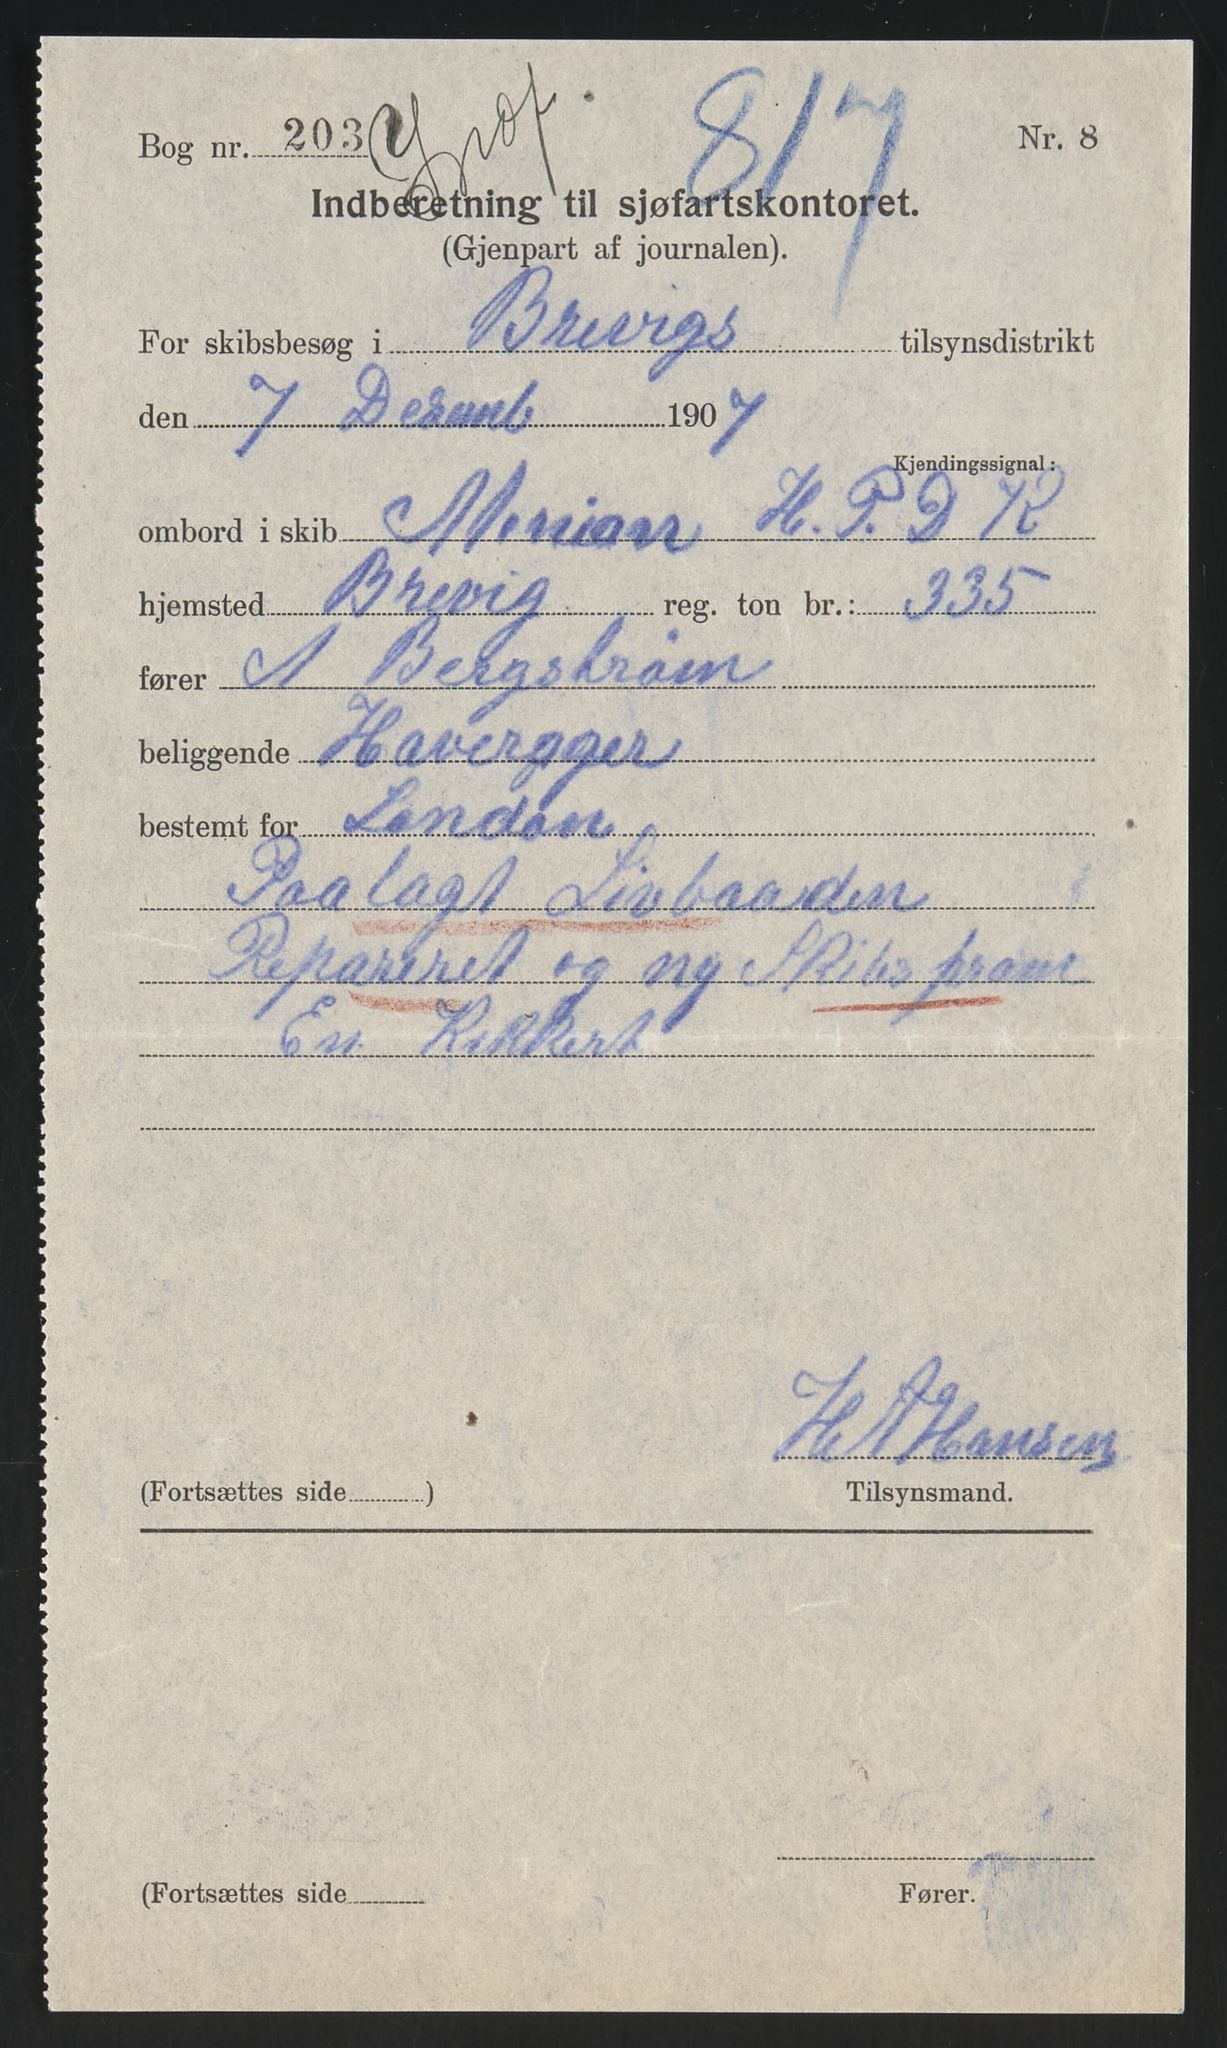 Bog nr. 203
817
Nr. 8
Indberetning til sjøfartskontoret.
(Gjenpart af journalen).
For skibsbesøg i Brevigs tilsynsdistrikt
den 7 Desemb 1907
Kjendingssignal:
ombord i skib H. P. D K
hjemsted Brevig reg. ton br.: 335
fører A Bergstrøm
beliggende
bestemt for London
Paalagt Livbaaden
Repareret og ny Skibspram
En Kikkert
H A Hansen
(Fortsættes side )
Tilsynsmand.
(Fortsættes side
Fører.